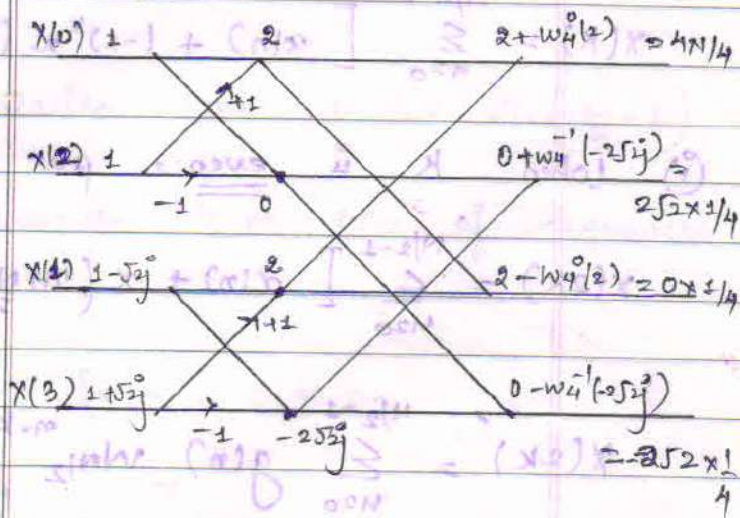 X(0) 1 2 2 + W4^0 (2) = 4×1/4
+1
X(2) 1 -1 0 0 + W4^-1 (-2√2j) =
2√2 × 1/4
X(1) 1-√2j 2 2 - W4^0 (2) = 0 × 1/4
+1
X(3) 1+√2j -1 -2√2j 0 - W4^-1 (-2√2j)
= -2√2 × 1/4